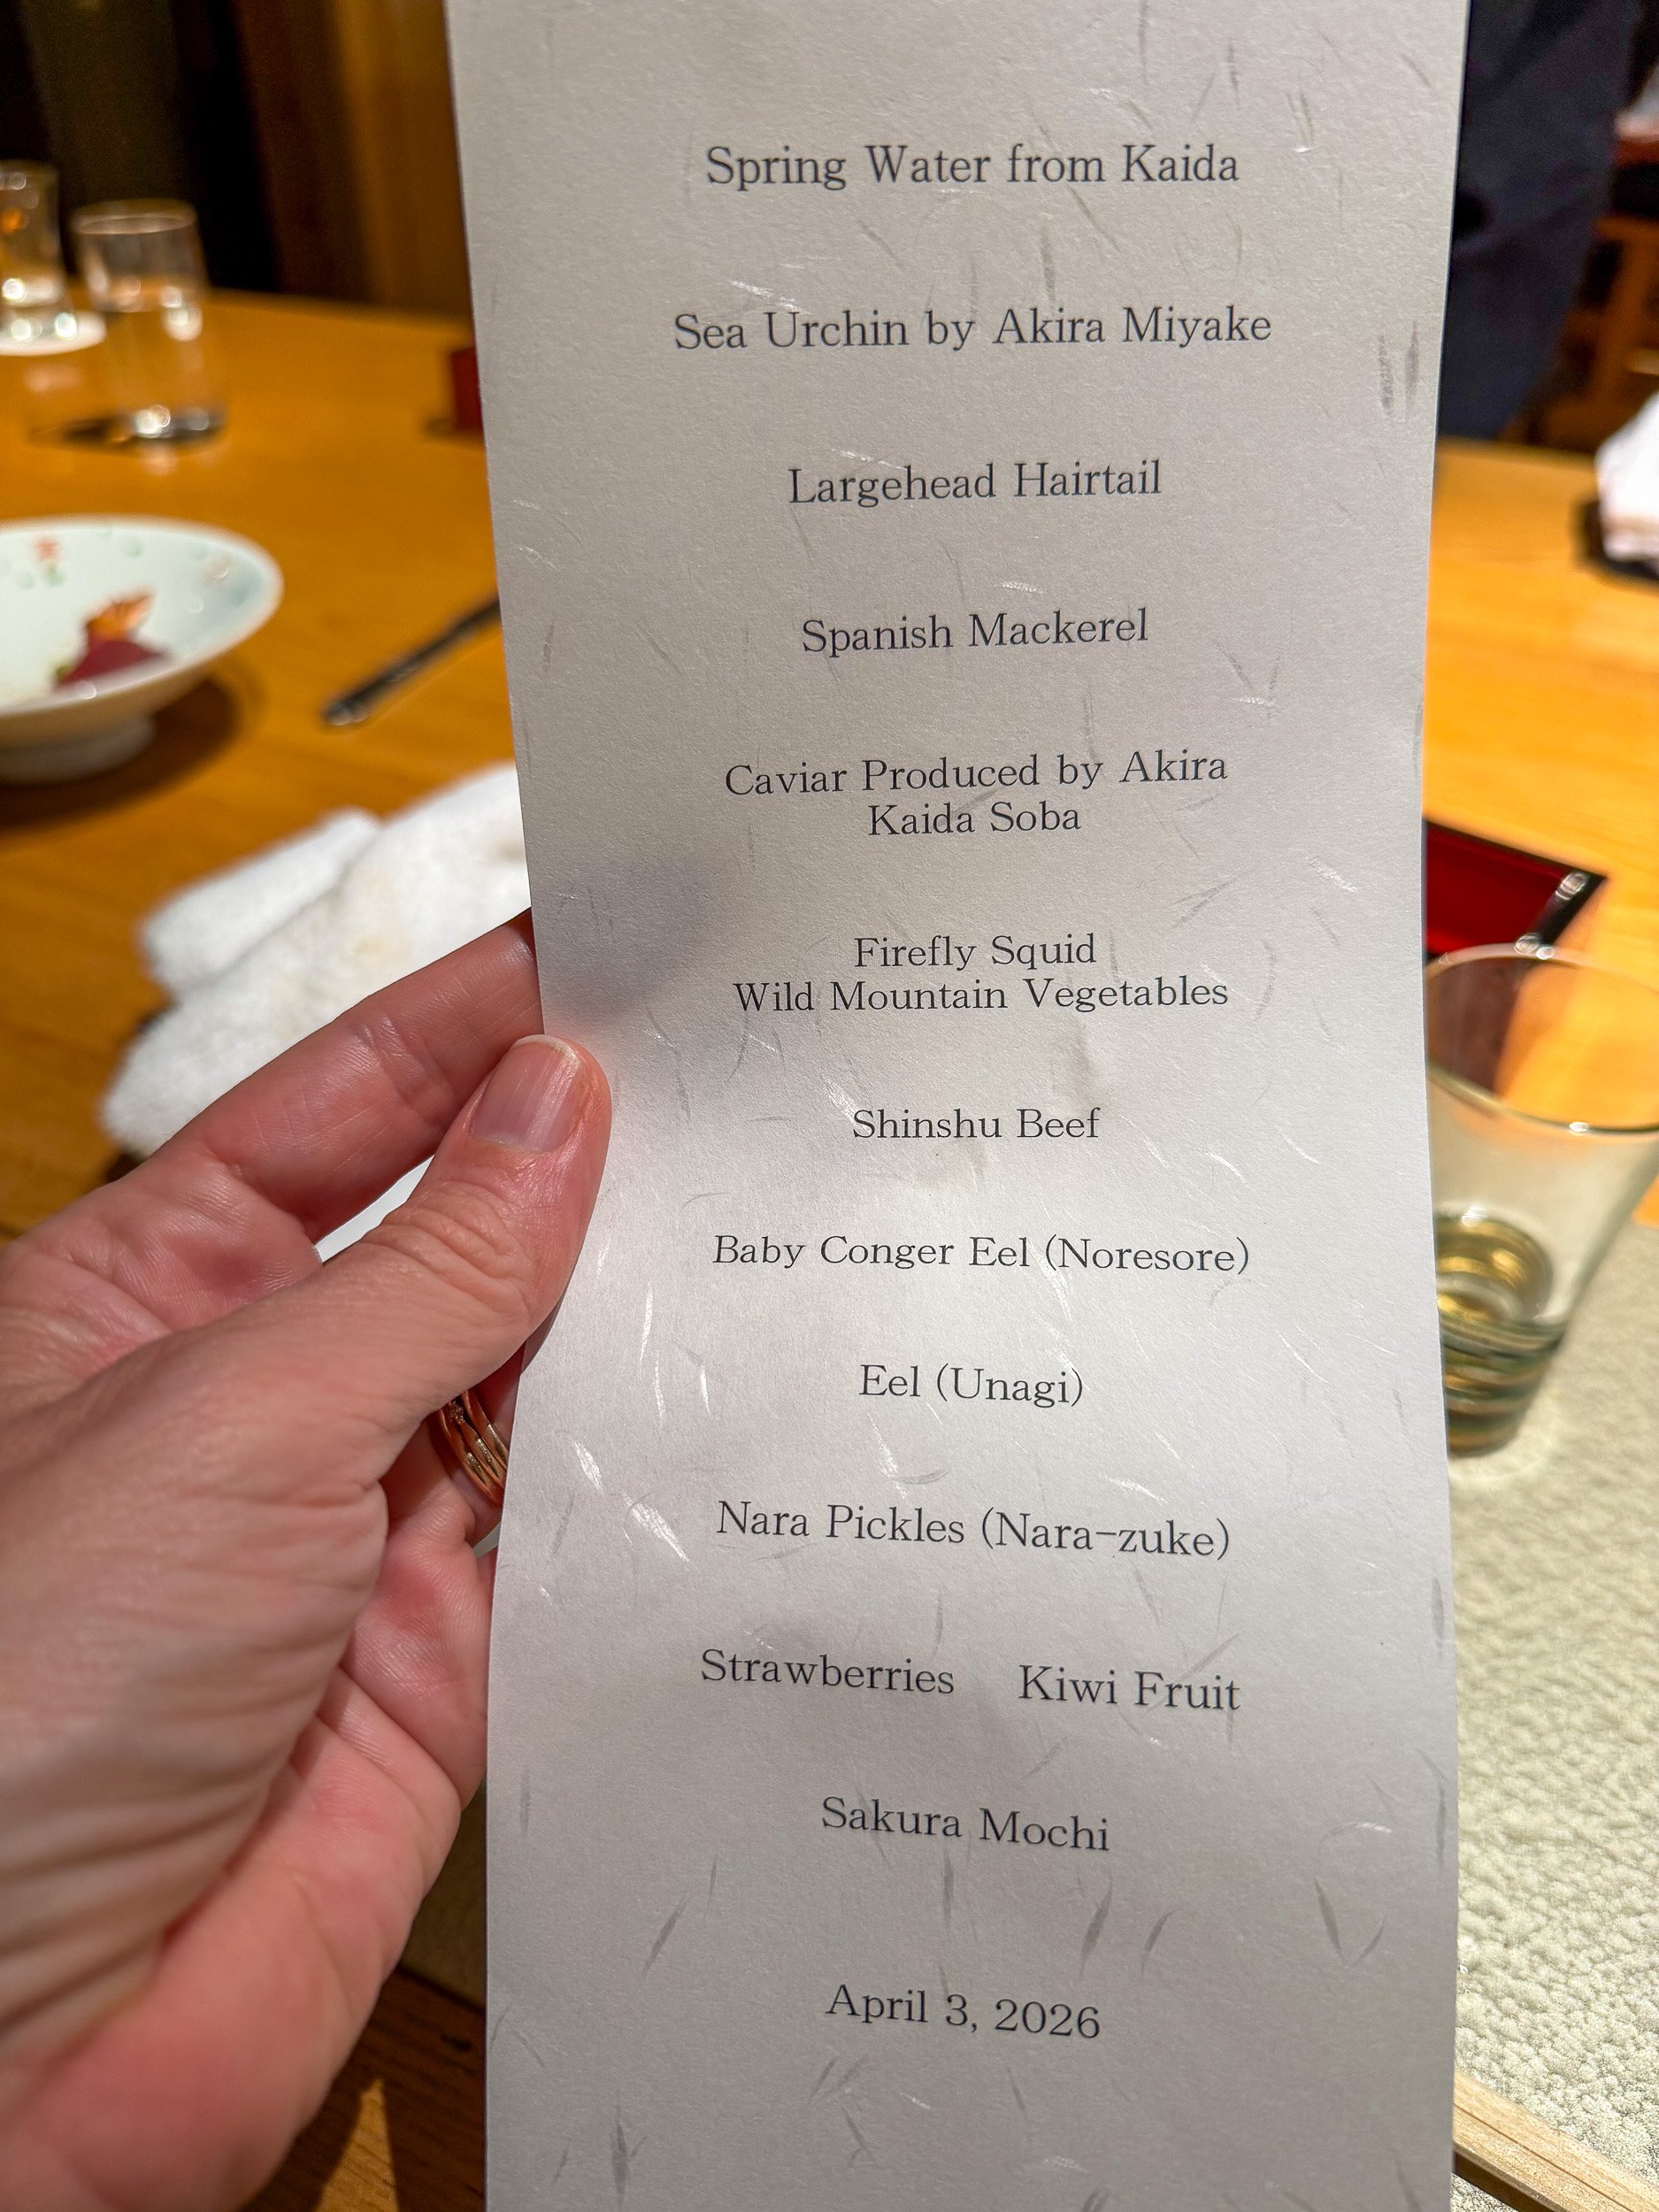 Spring Water from Kaida
Sea Urchin by Akira Miyake
Largehead Hairtail
Spanish Mackerel
Caviar Produced by Akira
Kaida Soba
Firefly Squid
Wild Mountain Vegetables
Shinshu Beef
Baby Conger Eel (Noresore)
Eel (Unagi)
Nara Pickles (Nara-zuke)
Strawberries Kiwi Fruit
Sakura Mochi
April 3, 2026